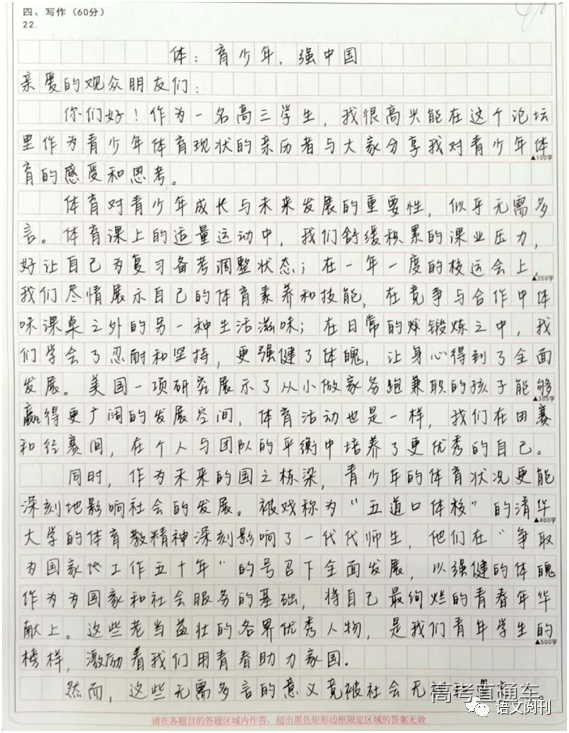 四、写作（60分）
22.
体：育少年，强中国
亲爱的观众朋友们：
你们好！作为一名高三学生，我很高兴能在这个论坛
里作为青少年体育现状的亲历者与大家分享我对青少年体
▲100字
育的感受和思考。
体育对青少年成长与未来发展的重要性，似乎无需多
言。体育课上的适量运动中，我们舒缓积累的课业压力，
好让自己为复习备考调整状态；在一年一度的校运会上，
▲200字
我们尽情展示自己的体育素养和技能，在竞争与合作中体
味课桌之外的另一种生活滋味；在日常的锻炼之中，我
们学会了忍耐和坚持，更强健了体魄，让身心得到了全面
发展。美国一项研究展示了从小做家务跑兼职的孩子能够
▲300字
赢得更广阔的发展空间，体育活动也是一样，我们在田赛
和径赛间，在个人与团队的平衡中培养了更优秀的自己。
同时，作为未来的国之栋梁，青少年的体育状况更能
深刻地影响社会的发展。被戏称为“五道口体校”的清华
▲400字
大学的体育教精神深刻影响了一代代师生，他们在“争取
为国家工作五十年”的号召下全面发展，以强健的体魄
作为为国家和社会服务的基础，将自己最绚烂的青春年华
献上。这些老当益壮的各界优秀人物，是我们青年学生的
▲500字
榜样，激励着我们用青春助力家国。
然而，这些无需多言的意义竟被社会无
高考直通车
语文阅刊
请在各题目的答题区域内作答，超出黑色矩形边框限定区域的答案无效